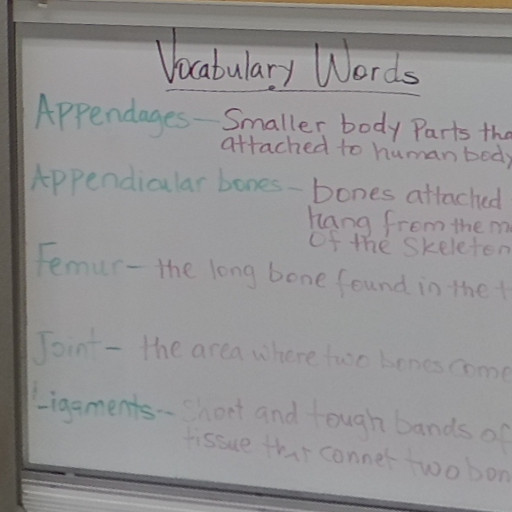 Vocabulary Words
Appendages - Smaller body parts tha
attached to human body
Appendicular bones - bones attached
hang from the m
of the skeleton
Femur - the long bone found in the t
Joint - the area where two bones come
Ligaments - short and tough bands of
tissue that connet two bon